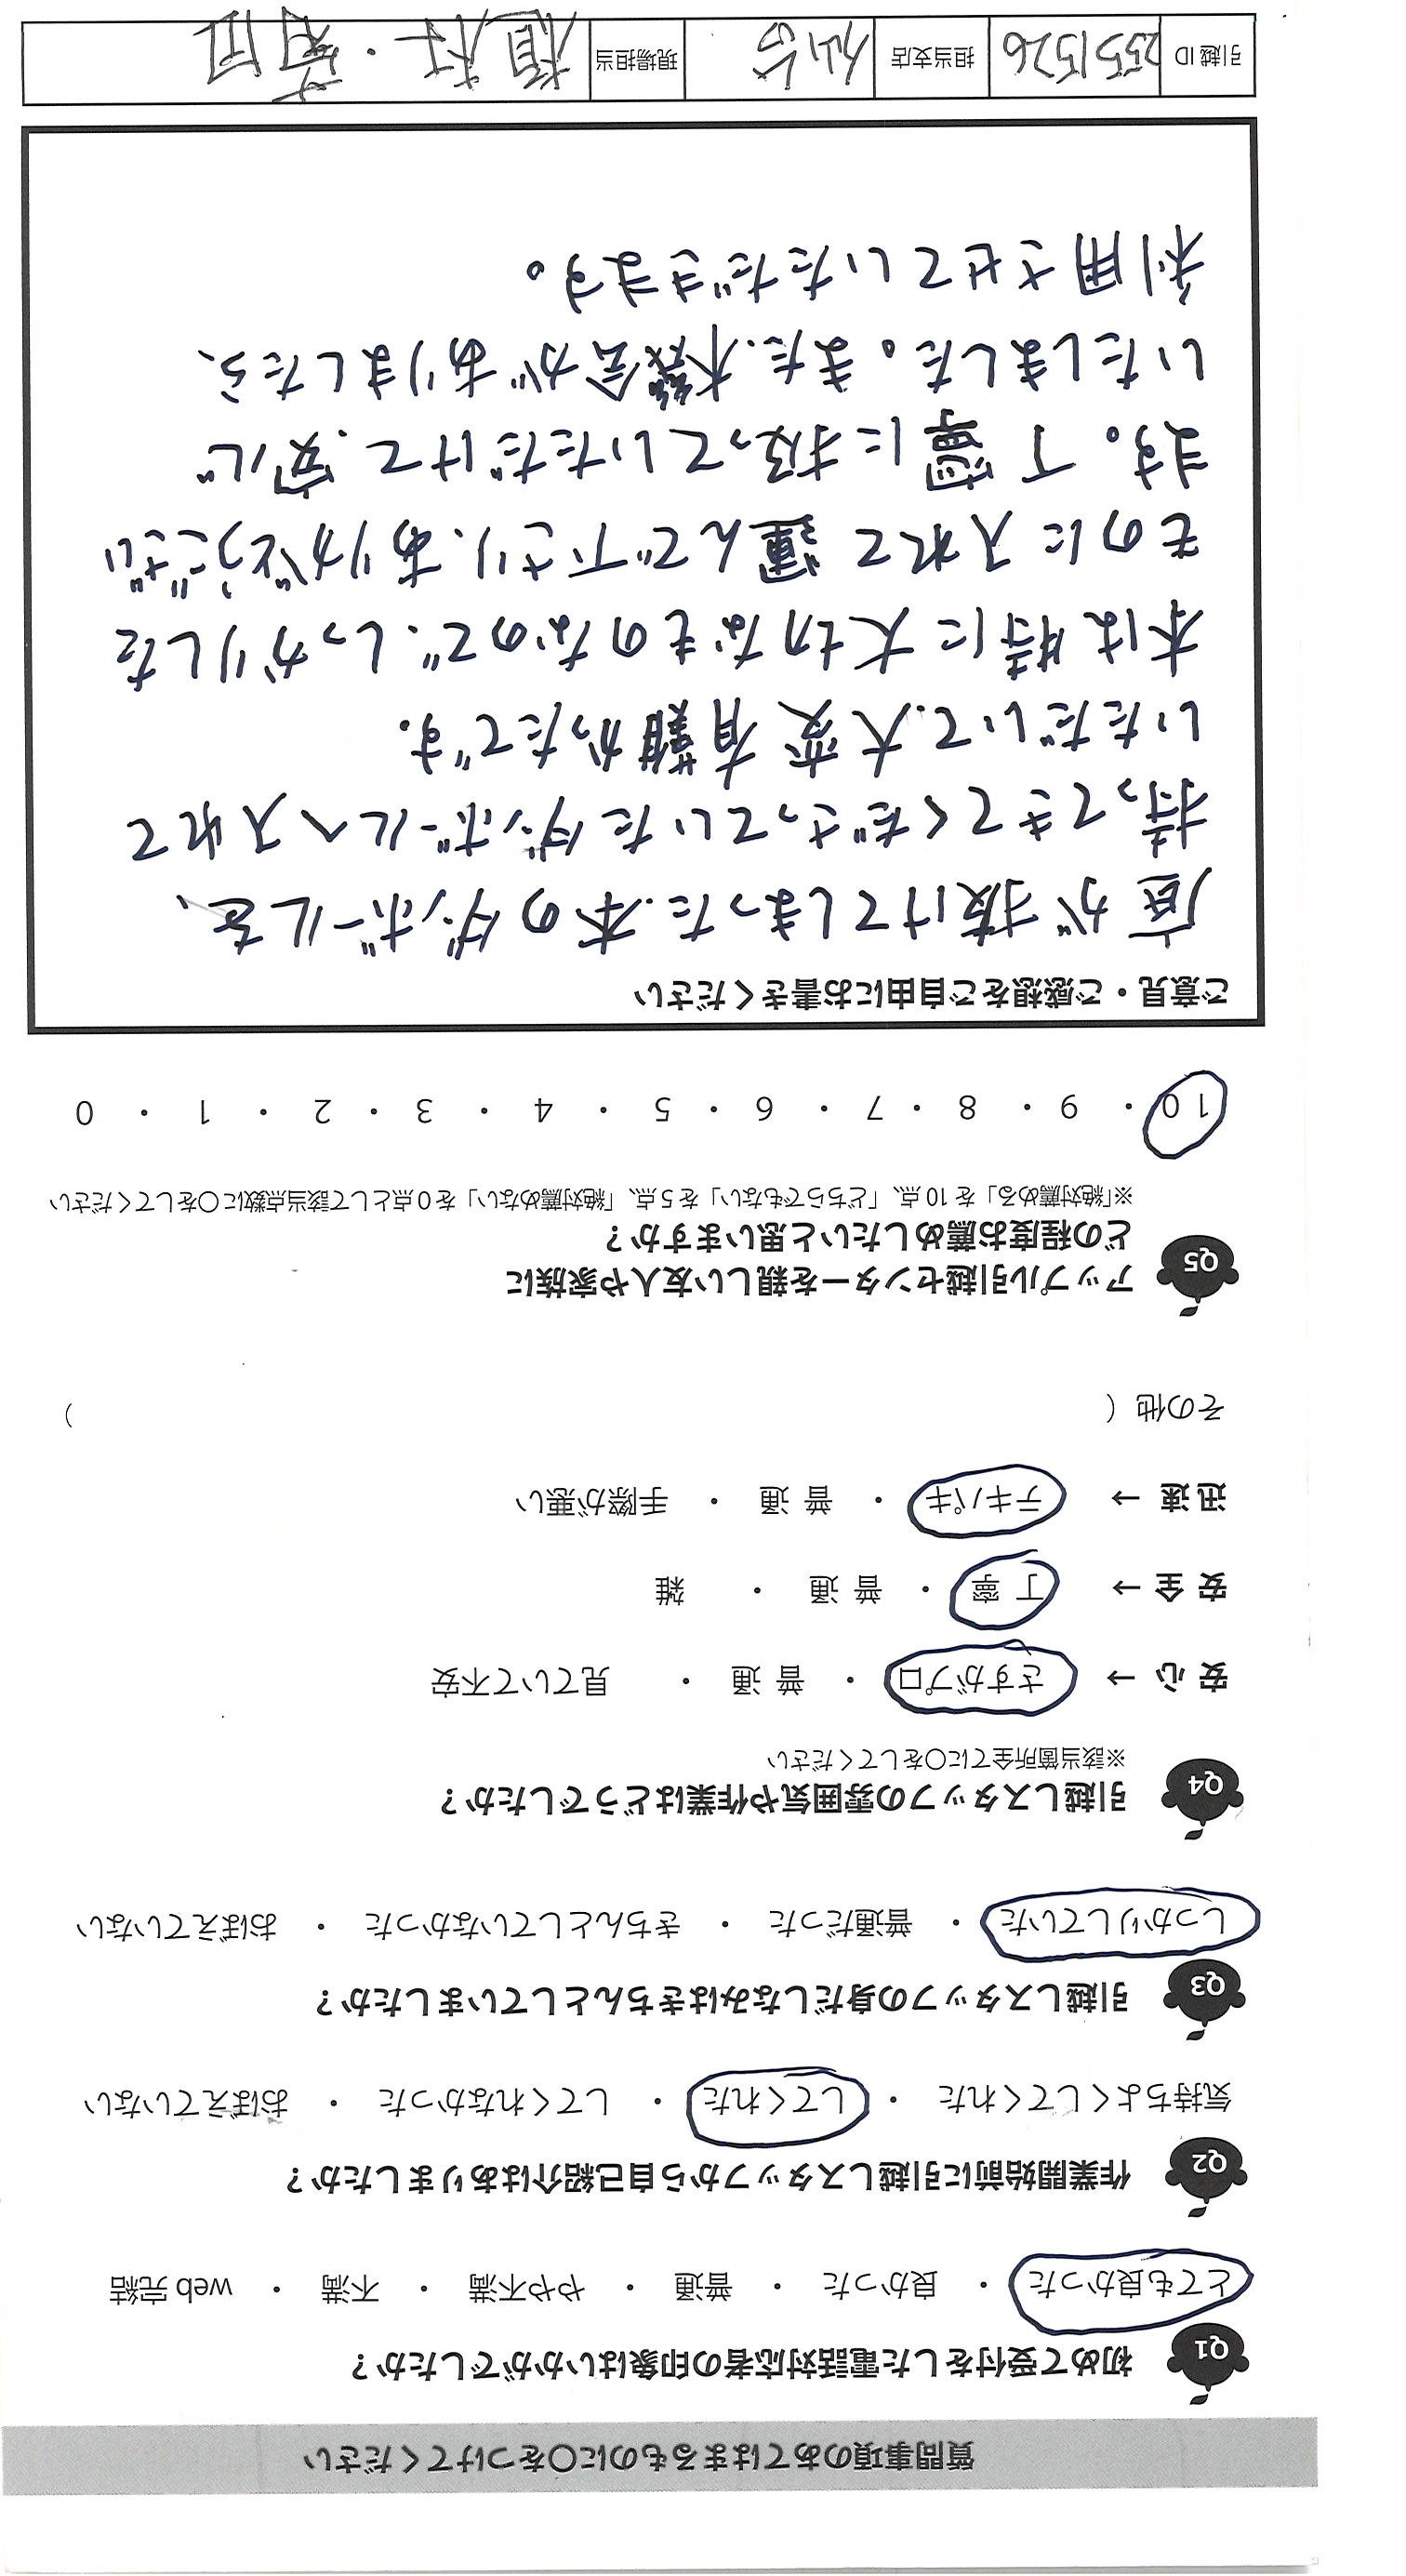 質問事項のあてはまるものに〇をつけてください
Q1 初めて受付をした電話対応者の印象はいかがでしたか？
とても良かった ・ 良かった ・ 普通 ・ やや不満 ・ 不満 ・ web 完結
Q2 作業開始前に引越しスタッフから自己紹介はありましたか？
気持ちよくしてくれた ・ してくれた ・ してくれなかった ・ おぼえていない
Q3 引越しスタッフの身だしなみはきちんとしていましたか？
しっかりしていた ・ 普通だった ・ きちんとしていなかった ・ おぼえていない
Q4 引越しスタッフの雰囲気や作業はどうでしたか？
※該当箇所全てに〇をしてください
安 心 → さすがプロ ・ 普 通 ・ 見ていて不安
安 全 → 丁 寧 ・ 普 通 ・ 雑
迅 速 → テキパキ ・ 普 通 ・ 手際が悪い
その他（ ）
Q5 アップル引越センターを親しい友人や家族に
どの程度お薦めしたいと思いますか？
※「絶対薦める」を 10 点、「どちらでもない」を 5 点、「絶対薦めない」を 0 点として該当点数に〇をしてください
10 ・ 9 ・ 8 ・ 7 ・ 6 ・ 5 ・ 4 ・ 3 ・ 2 ・ 1 ・ 0
ご意見・ご感想をご自由にお書きください
底が抜けてしまった、本のダンボールを、
持ってきてくださっていたダンボールへ入れて
いただいて、大変有難かったです。
本は特に大切なものなので、しっかりした
ものに入れて運んで下さり、ありがとうござい
ます。丁寧に扱っていただけて、安心
いたしました。また、機会がありましたら、
利用させていただきます。
引越 ID 2551526 担当支店 仙台 現場担当 植村・